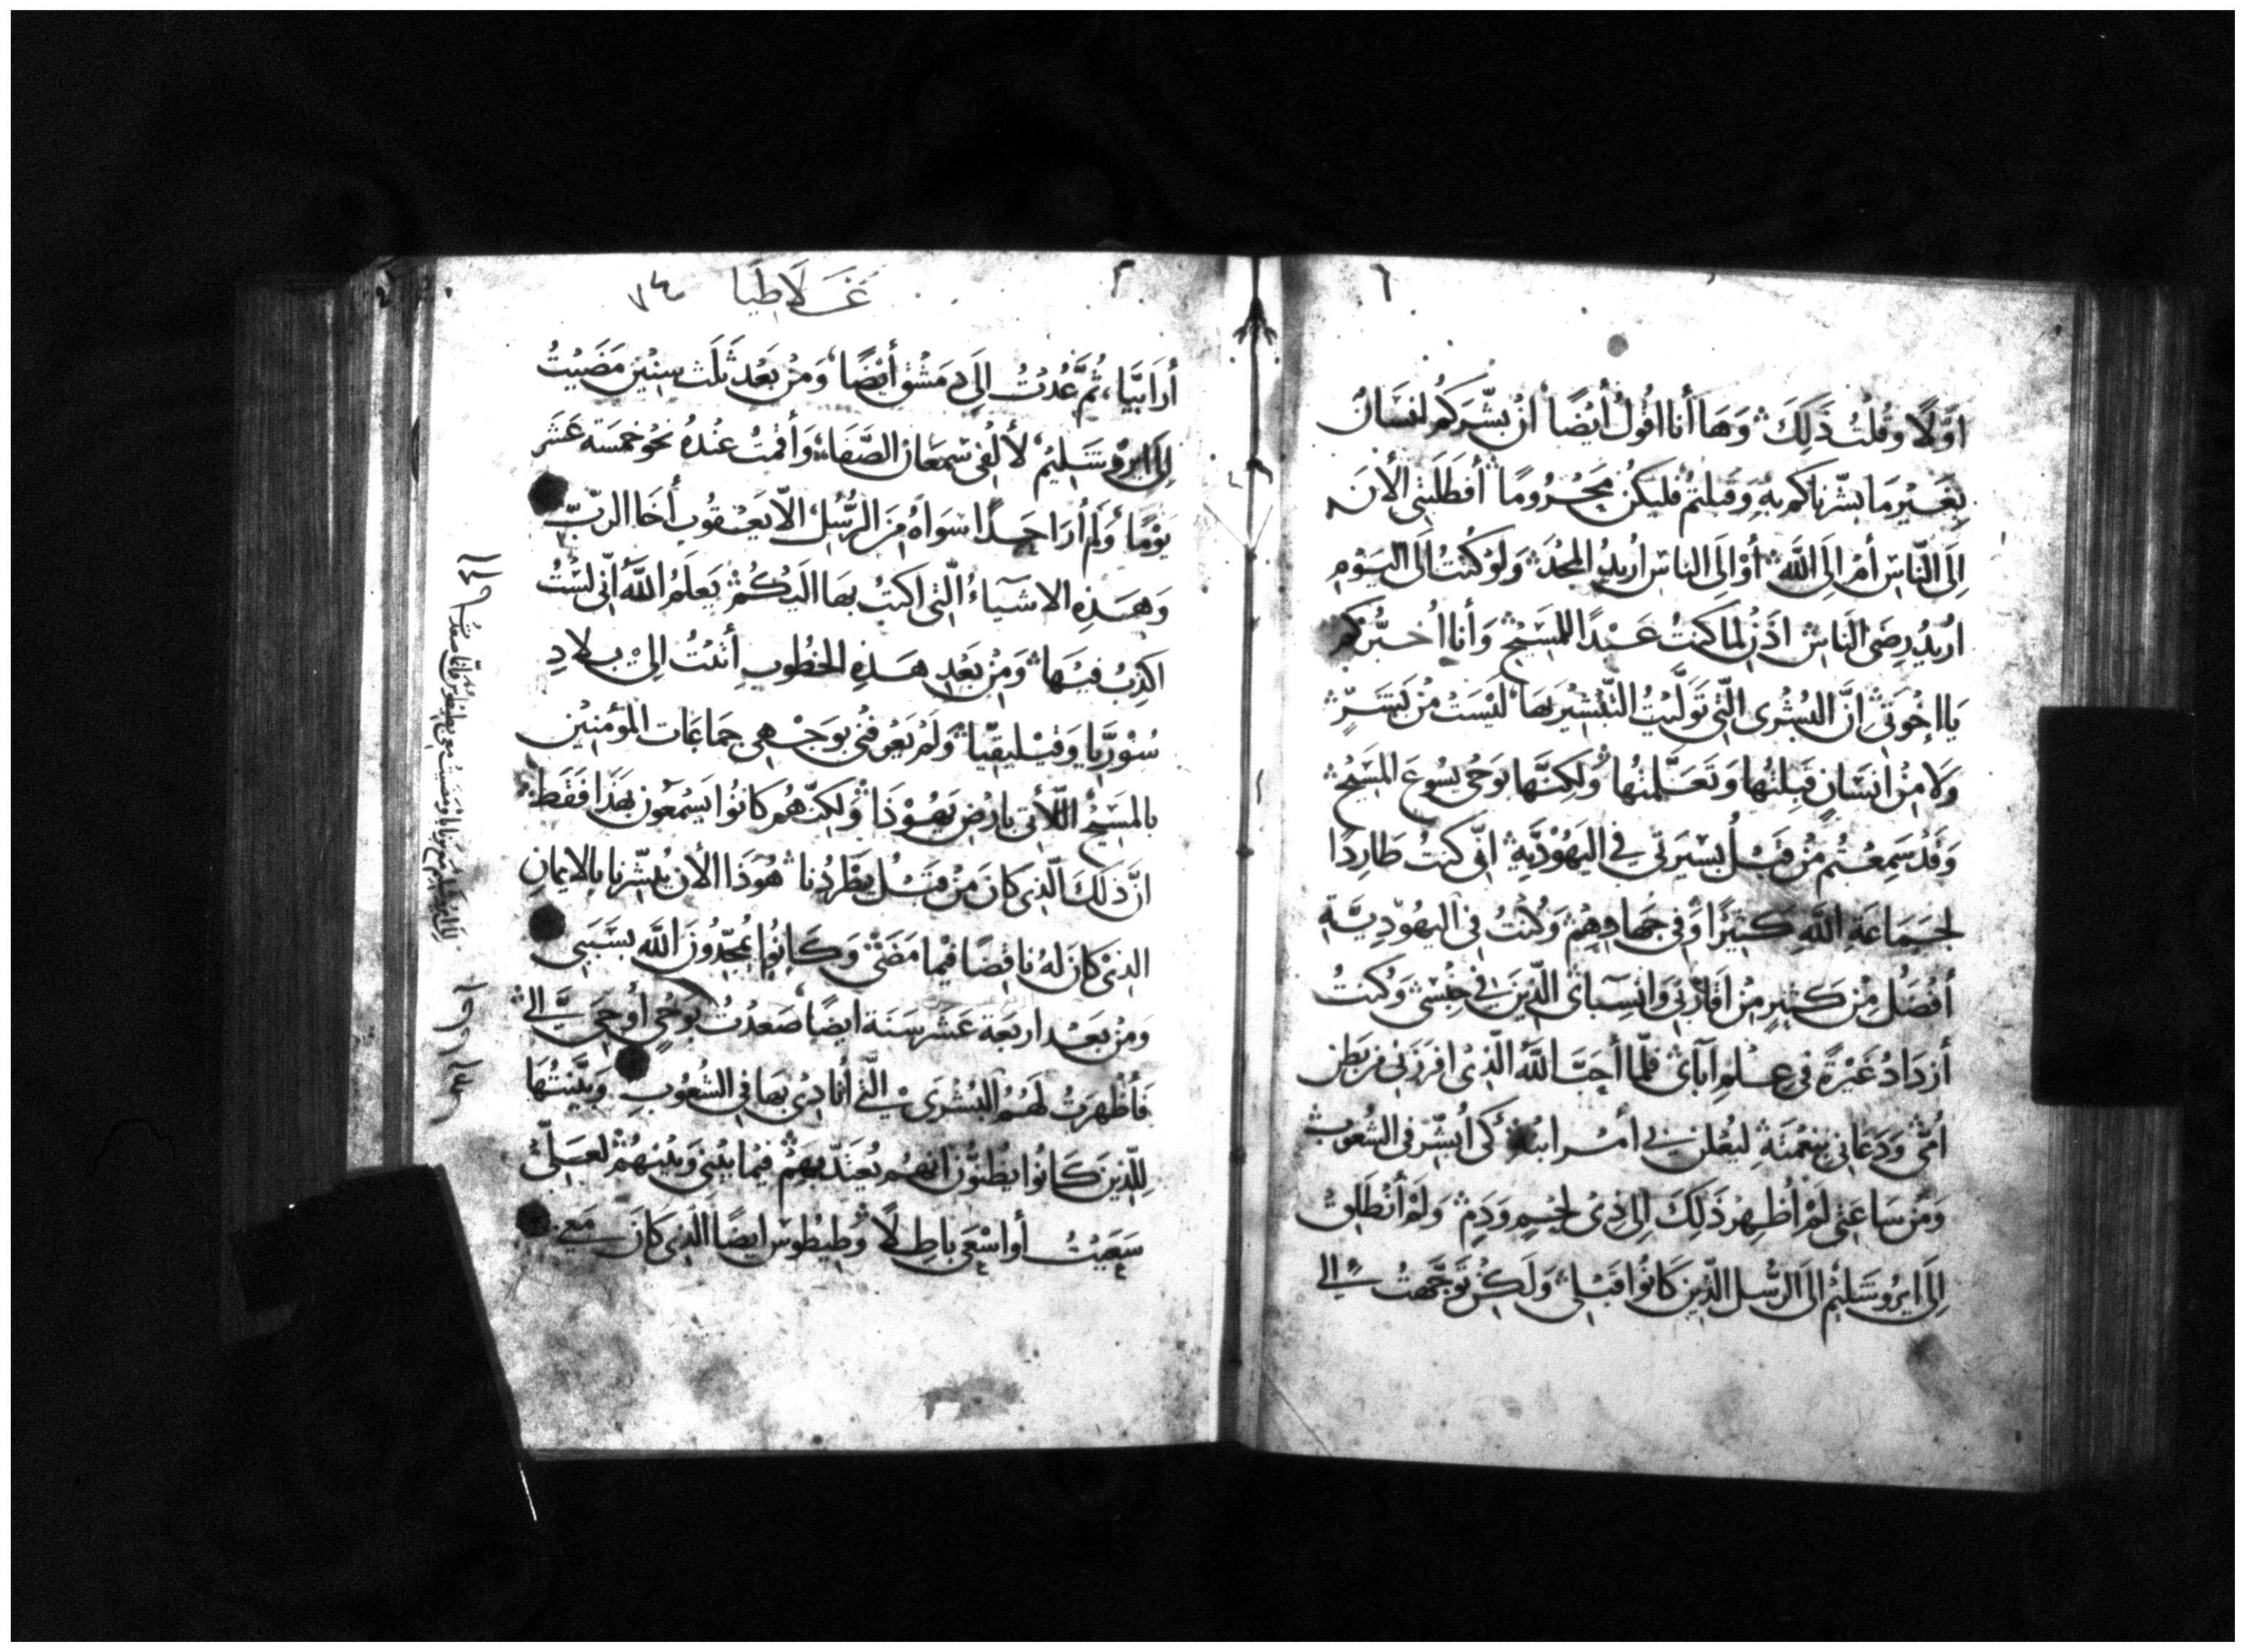 اوّلًا وقُلتُ ذَلِكَ وَهَا أنا اقُولُ أيْضًا انْ بشّرَكُمْ انسَانٌ
بِغَيْرِ مَا بشّرناكم بِهِ وَقبلتمْ فليَكُن مَحْرُومًا أفطَلَبَتِى الأنَ
إلَى النّاسِ أمْ الَى اللَّه أوْ الَى الناسِ اريدُ المجْدَ وَلوْ كُنتُ الَى اليَوْمِ
اريدُ رِضَى النَاسِ اذَنْ لما كنتُ عَبْدًا للمَسِيْحِ وَأنا اُخبُّركم
يَا اخْوَتِى انَّ البُشْرى الّتِى تَوَلَّيْتُ التّبْشِيْر بهَا ليْسَتْ مِنْ بَشَرٍ
وَلَا مِنْ انسَانٍ قَبِلتُها وَتَعَلَّمتُها وَلكِنَّها بوَحْى يسُوعَ المَسِيْحِ
وَقدْ سَمِعْتُم مِنْ قَبْلُ بسْيَرتِى فى اليَهُوْدِّيةِ انّى كنتُ طَارِدًا
لجَمَاعَةِ اللَّهِ كثِيْرًا وَفى جهادِهِمْ وَكُنْتُ فى اليهُوّدِيّةِ
أفضَلُ مِنْ كَثِيرٍ مِنْ اقارْبى وَانسِبآئ الّذِيَن فى جِنْسِى وَكنتُ
أزدَادُ غَيْرَةً فى عِلْمِ آبَآئ فلّما أحَبَّ اللَّهُ الّذِىْ افرزَنِى من بَطنِ
اُمّى وَدَعَانِى بنعْمَتِهِ ليُعْلِن لى أمْرَ ابنهِ كَى اُبشّرَ فى الشعُوبِ
وَمْن سَاعَتِى لَمْ أظهِرْ ذَلِكَ الى ذِىْ لحْمٍ وَدَمٍ وَلَمْ أنْطَلِقْ
إلَى ايرُوشَلِيْم الَى الرّسُل الذّين كَانُوا قَبْلِى وَلَكِنْ تَوَجَّهتُ الى
غَلَاطِيَا
أرَابيَّا، ثُمَّ عُدْتُ الَى دِمَشْق أيْضًا وَمْن بَعْد ثَلَث سِنِيْن مَضَيْتُ
الى ايْروشَلِيْمْ لأ لْقى سْمعَانْ الصَّفَا وَأقمتُ عنْدهُ نَحْو خمسَة عَشر
يوْمًا وَلَمْ أرَ احَدًا سوَاهُ مِنَ الرُّسُل الّا يعَقوُب أخَا الربّ
وَهَذِه الاشيَآءُ الّتِى اكتبُ بهَا الَيْكُمْ يَعلَمُ اللَّهُ انّى لسْتُ
اكذبُ فيْهَا وَمِنْ بَعْدِ هَذِهِ الخطُوبِ أتَيْتُ الىْ بِلادِ
سُوْرِيَّا وَقيْليقيّا وَلَمْ يَعرفنى بوَجْهِى جمَاعَات المؤمِنيْن
بالمَسِيْح اللّأتى بارْض يهوْدَا وَلكِنّهُم كانوُا يسْمعُون بهَذا فَقَط
انّ ذلكَ الّذِى كانَ مِنْ قبْلُ يطْرُدُنا هُوَذَا الأن يُبَشّرنا بالايمانِ
الذِىْ كانَ لهُ ناقِضًا فيْما مَضَىْ وَكَانوُا يُمجّدُونَ اللَّه بسَبَبى
ومْن بَعْد اربَعَة عَشر سَنَة ايضًا صَعدْتُ بوَحْى أوحِىَ الىَّ
فأظهرتُ لهُمْ البُشْرَى الّتى أنادِىْ بهَا فى الشعُوْبِ وَبيّنتُهَا
للّذِينَ كَانُوا يَظنوّن انهُمْ يُعْتَدّ بهمْ فيْما بيْنِى وَبيْنهُمْ لعَلّى
سَعَيْتُ أو اسْعَى باطِلًا وَطيْطوس ايضًا الّذِى كَانَ مَعِى